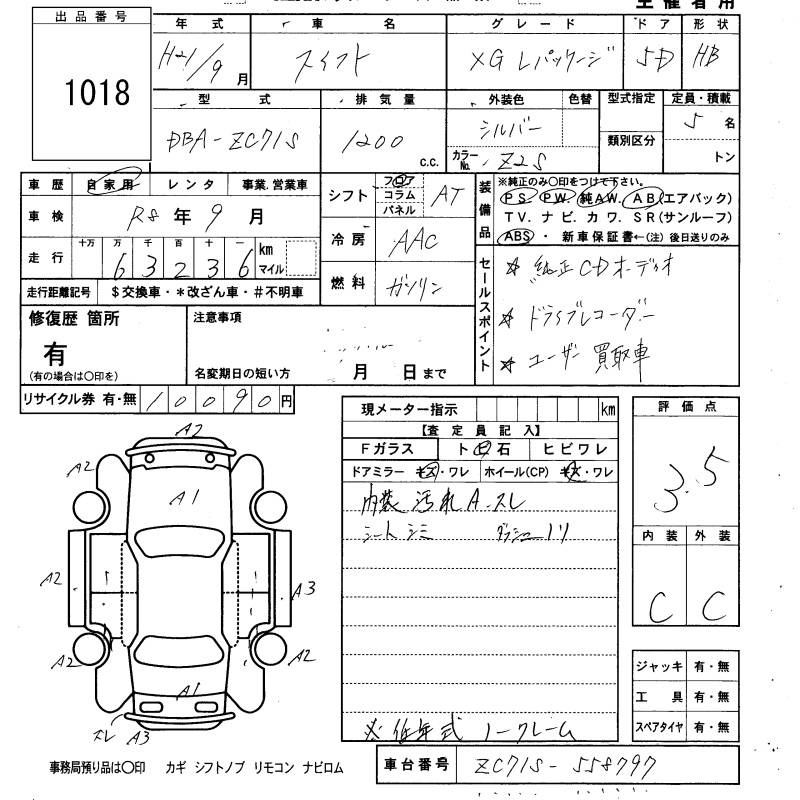 主催者用
出品番号
1018
年式 車名 グレード ドア 形状
H21/9月 スイフト XG Lパッケージ 5D HB
型式 排気量 外装色 色替 型式指定 定員・積載
DBA-ZC71S 1200 c.c. シルバー 類別区分 5名
カラーNo. Z2S トン
車歴 自家用 レンタ 事業.営業車
車検 R8年9月
走行 十万 万 千 百 十 一 km マイル
63236
走行距離記号 $交換車・*改ざん車・#不明車
シフト フロア コラム パネル AT
冷房 AAC
燃料 ガソリン
装備品
※純正のみ〇印をつけて下さい。
PS. PW. 純AW. AB(エアバック)
TV. ナビ. カワ. SR(サンルーフ)
ABS・ 新車保証書←(注)後日送りのみ
セールスポイント
☆ 純正CDオーディオ
☆ ドライブレコーダー
☆ ユーザー買取車
修復歴 箇所
有
(有の場合は〇印を)
注意事項
名変期日の短い方 月 日まで
リサイクル券 有・無 10090円
現メーター指示 km
【査定員記入】
Fガラス ト日石 ヒビワレ
ドアミラー キズ・ワレ ホイール(CP) キズ・ワレ
内装 汚れ A.スレ
シート シミ ダッシュ ノリ
※低年式 ノークレーム
評価点
3.5
内装 外装
C C
ジャッキ 有・無
工具 有・無
スペアタイヤ 有・無
A2
A2 A1 A2
A2 A3
A2 A1 A2
スレ A3
事務局預り品は〇印 カギ シフトノブ リモコン ナビロム
車台番号 ZC71S-558797